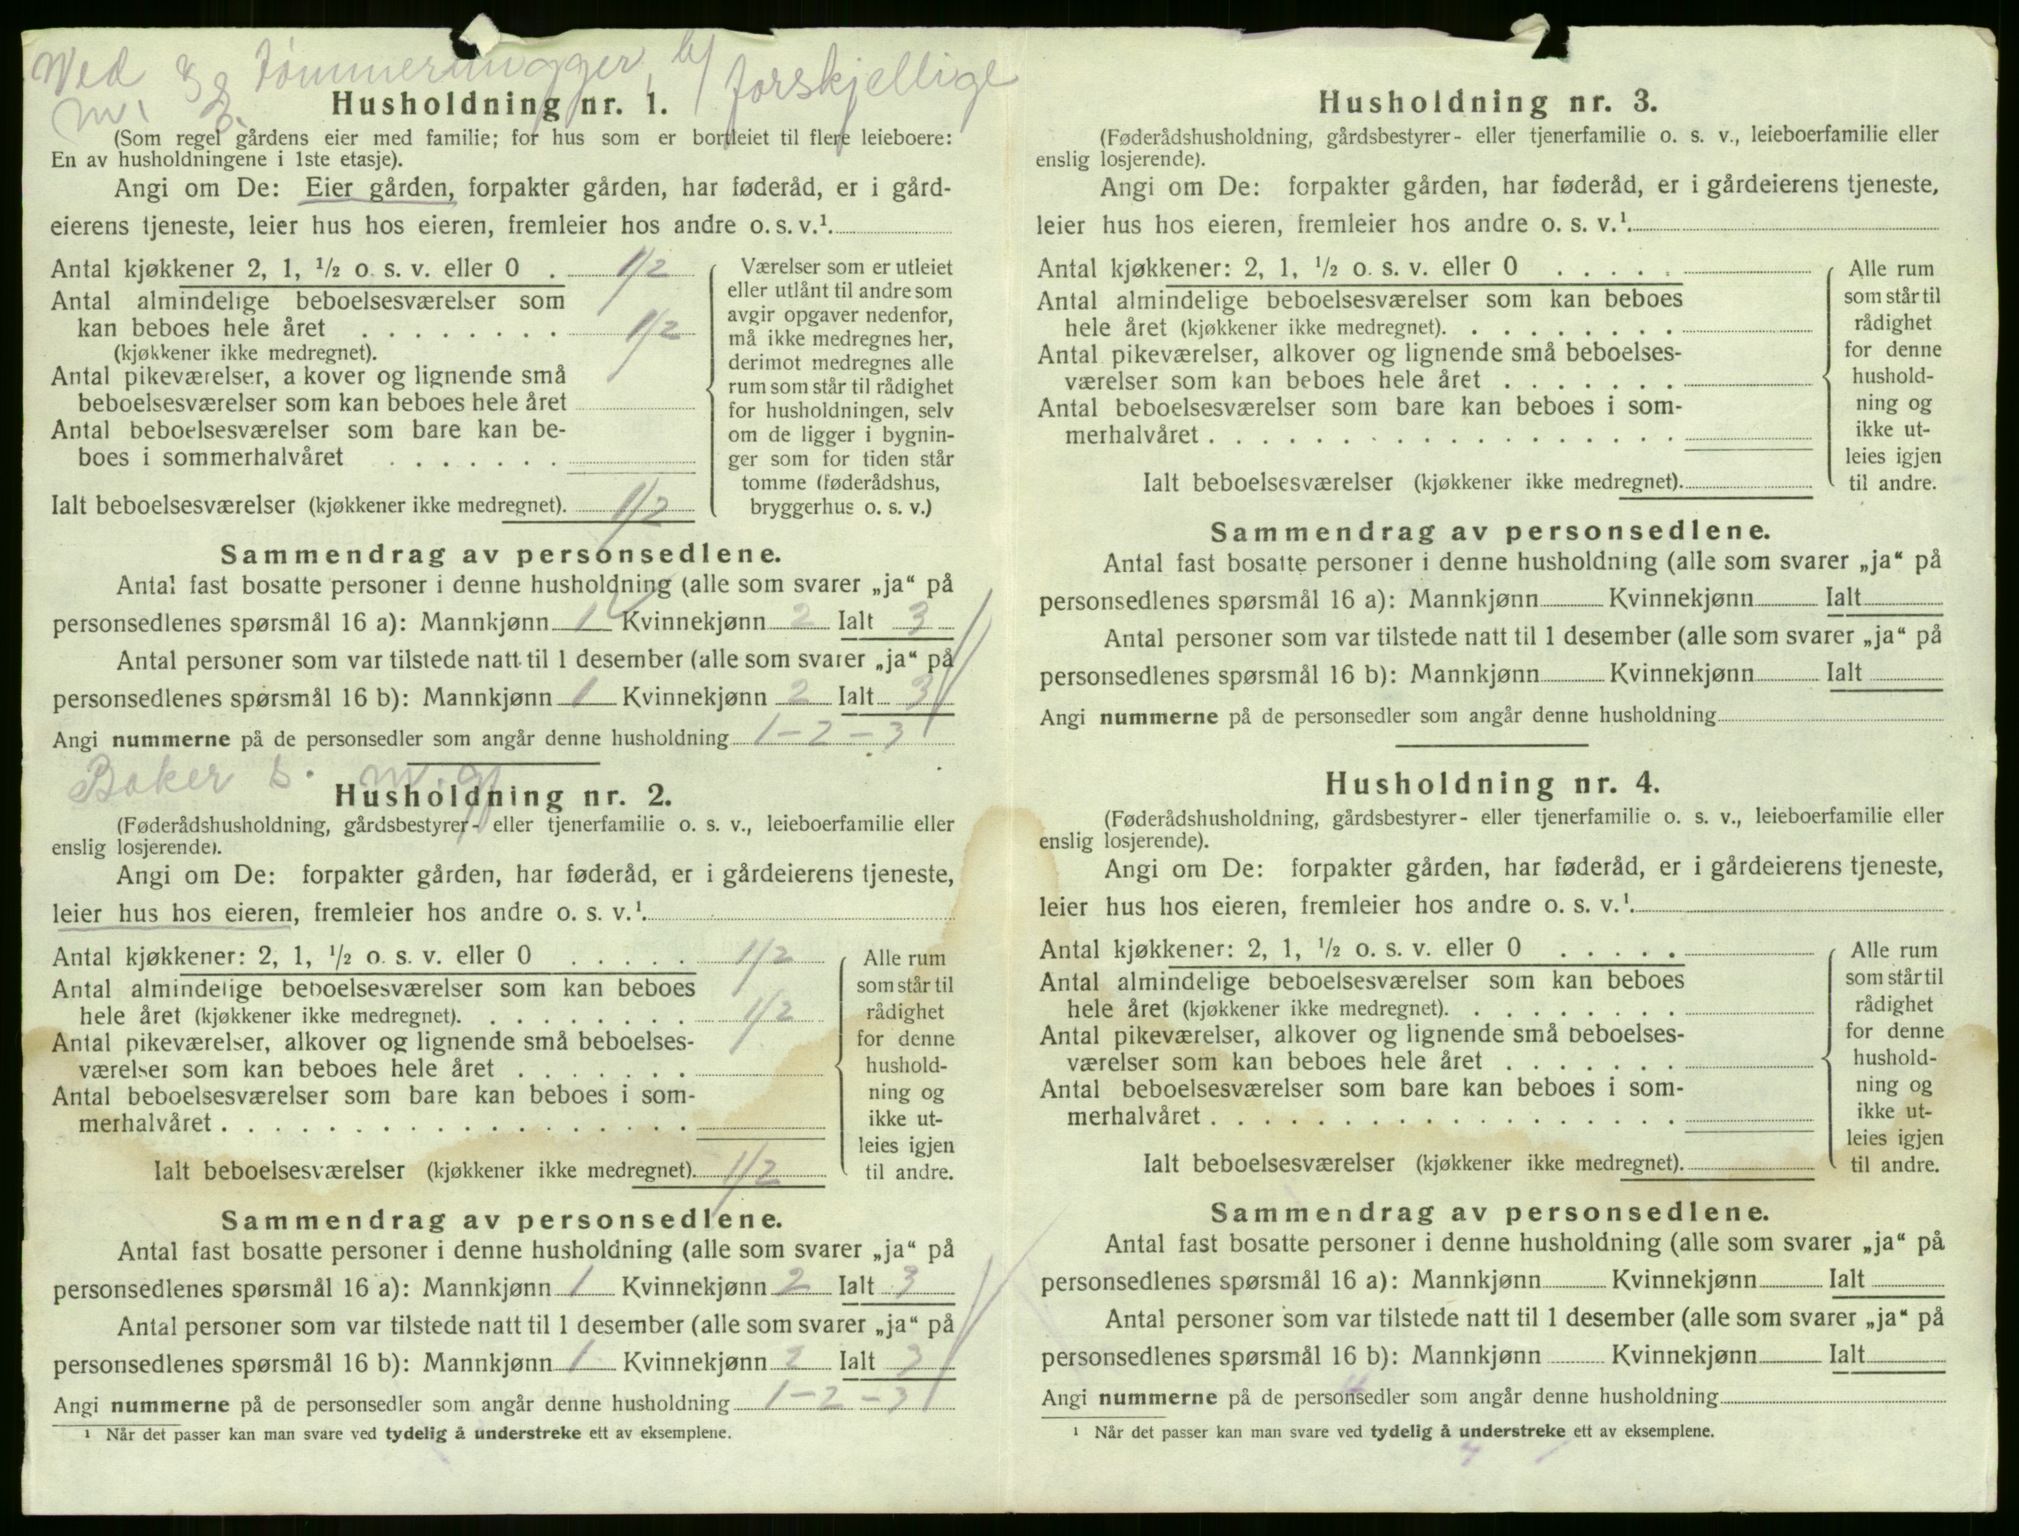 Ved og tømmerhugger, hj forskjellige
m.
Husholdning nr. 1.
(Som regel gårdens eier med familie; for hus som er bortleiet til flere leieboere:
En av husholdningene i 1ste etasje).
Angi om De: Eier gården, forpakter gården, har føderåd, er i gård-
eierens tjeneste, leier hus hos eieren, fremleier hos andre o. s. v.¹
Antal kjøkkener 2, 1, ½ o. s. v. eller 0 . 1/2
Antal almindelige beboelsesværelser som
kan beboes hele året . . . . . . . . 1/2
(kjøkkener ikke medregnet).
Antal pikeværelser, a kover og lignende små
beboelsesværelser som kan beboes hele året
Antal beboelsesværelser som bare kan be-
boes i sommerhalvåret . . . . . . .
Ialt beboelsesværelser (kjøkkener ikke medregnet). 1/2
Værelser som er utleiet
eller utlånt til andre som
avgir opgaver nedenfor,
må ikke medregnes her,
derimot medregnes alle
rum som står til rådighet
for husholdningen, selv
om de ligger i bygnin-
ger som for tiden står
tomme (føderådshus,
bryggerhus o. s. v.)
Sammendrag av personsedlene.
Antal fast bosatte personer i denne husholdning (alle som svarer „ja“ på
personsedlenes spørsmål 16 a): Mannkjønn 1 Kvinnekjønn 2 Ialt 3
Antal personer som var tilstede natt til 1 desember (alle som svarer „ja“ på
personsedlenes spørsmål 16 b): Mannkjønn 1 Kvinnekjønn 2 Ialt 3
Angi nummerne på de personsedler som angår denne husholdning 1 - 2 - 3
Baker s. m.
Husholdning nr. 2.
(Føderådshusholdning, gårdsbestyrer- eller tjenerfamilie o. s. v., leieboerfamilie eller
enslig losjerende).
Angi om De: forpakter gården, har føderåd, er i gårdeierens tjeneste,
leier hus hos eieren, fremleier hos andre o. s. v.¹
Antal kjøkkener: 2, 1, ½ o. s. v. eller 0 . . . . . 1/2
Antal almindelige beboelsesværelser som kan beboes
hele året (kjøkkener ikke medregnet). . . . . . . . . 1/2
Antal pikeværelser, alkover og lignende små beboelses-
værelser som kan beboes hele året . . . . . . .
Antal beboelsesværelser som bare kan beboes i som-
merhalvåret . . . . . . . . . . . . . . . . . .
Ialt beboelsesværelser (kjøkkener ikke medregnet). 1/2
Alle rum
som står til
rådighet
for denne
hushold-
ning og
ikke ut-
leies igjen
til andre.
Sammendrag av personsedlene.
Antal fast bosatte personer i denne husholdning (alle som svarer „ja“ på
personsedlenes spørsmål 16 a): Mannkjønn 1 Kvinnekjønn 2 Ialt 3
Antal personer som var tilstede natt til 1 desember (alle som svarer „ja“ på
personsedlenes spørsmål 16 b): Mannkjønn 1 Kvinnekjønn 2 Ialt 3
Angi nummerne på de personsedler som angår denne husholdning 1 - 2 - 3
¹ Når det passer kan man svare ved tydelig å understreke ett av eksemplene.
Husholdning nr. 3.
(Føderådshusholdning, gårdsbestyrer- eller tjenerfamilie o. s. v., leieboerfamilie eller
enslig losjerende).
Angi om De: forpakter gården, har føderåd, er i gårdeierens tjeneste,
leier hus hos eieren, fremleier hos andre o. s. v.¹
Antal kjøkkener: 2, 1, ½ o. s. v. eller 0 . . . . .
Antal almindelige beboelsesværelser som kan beboes
hele året (kjøkkener ikke medregnet). . . . . . . . .
Antal pikeværelser, alkover og lignende små beboelses-
værelser som kan beboes hele året . . . . . . .
Antal beboelsesværelser som bare kan beboes i som-
merhalvåret . . . . . . . . . . . . . . . . . .
Ialt beboelsesværelser (kjøkkener ikke medregnet).
Alle rum
som står til
rådighet
for denne
hushold-
ning og
ikke ut-
leies igjen
til andre.
Sammendrag av personsedlene.
Antal fast bosatte personer i denne husholdning (alle som svarer „ja“ på
personsedlenes spørsmål 16 a): Mannkjønn Kvinnekjønn Ialt
Antal personer som var tilstede natt til 1 desember (alle som svarer „ja“ på
personsedlenes spørsmål 16 b): Mannkjønn Kvinnekjønn Ialt
Angi nummerne på de personsedler som angår denne husholdning
Husholdning nr. 4.
(Føderådshusholdning, gårdsbestyrer- eller tjenerfamilie o. s. v., leieboerfamilie eller
enslig losjerende).
Angi om De: forpakter gården, har føderåd, er i gårdeierens tjeneste,
leier hus hos eieren, fremleier hos andre o. s. v.¹
Antal kjøkkener: 2, 1, ½ o. s. v. eller 0 . . . . .
Antal almindelige beboelsesværelser som kan beboes
hele året (kjøkkener ikke medregnet). . . . . . . . .
Antal pikeværelser, alkover og lignende små beboelses-
værelser som kan beboes hele året . . . . . . .
Antal beboelsesværelser som bare kan beboes i som-
merhalvåret . . . . . . . . . . . . . . . . . .
Ialt beboelsesværelser (kjøkkener ikke medregnet).
Alle rum
som står til
rådighet
for denne
hushold-
ning og
ikke ut-
leies igjen
til andre.
Sammendrag av personsedlene.
Antal fast bosatte personer i denne husholdning (alle som svarer „ja“ på
personsedlenes spørsmål 16 a): Mannkjønn Kvinnekjønn Ialt
Antal personer som var tilstede natt til 1 desember (alle som svarer „ja“ på
personsedlenes spørsmål 16 b): Mannkjønn Kvinnekjønn Ialt
Angi nummerne på de personsedler som angår denne husholdning
¹ Når det passer kan man svare ved tydelig å understreke ett av eksemplene.